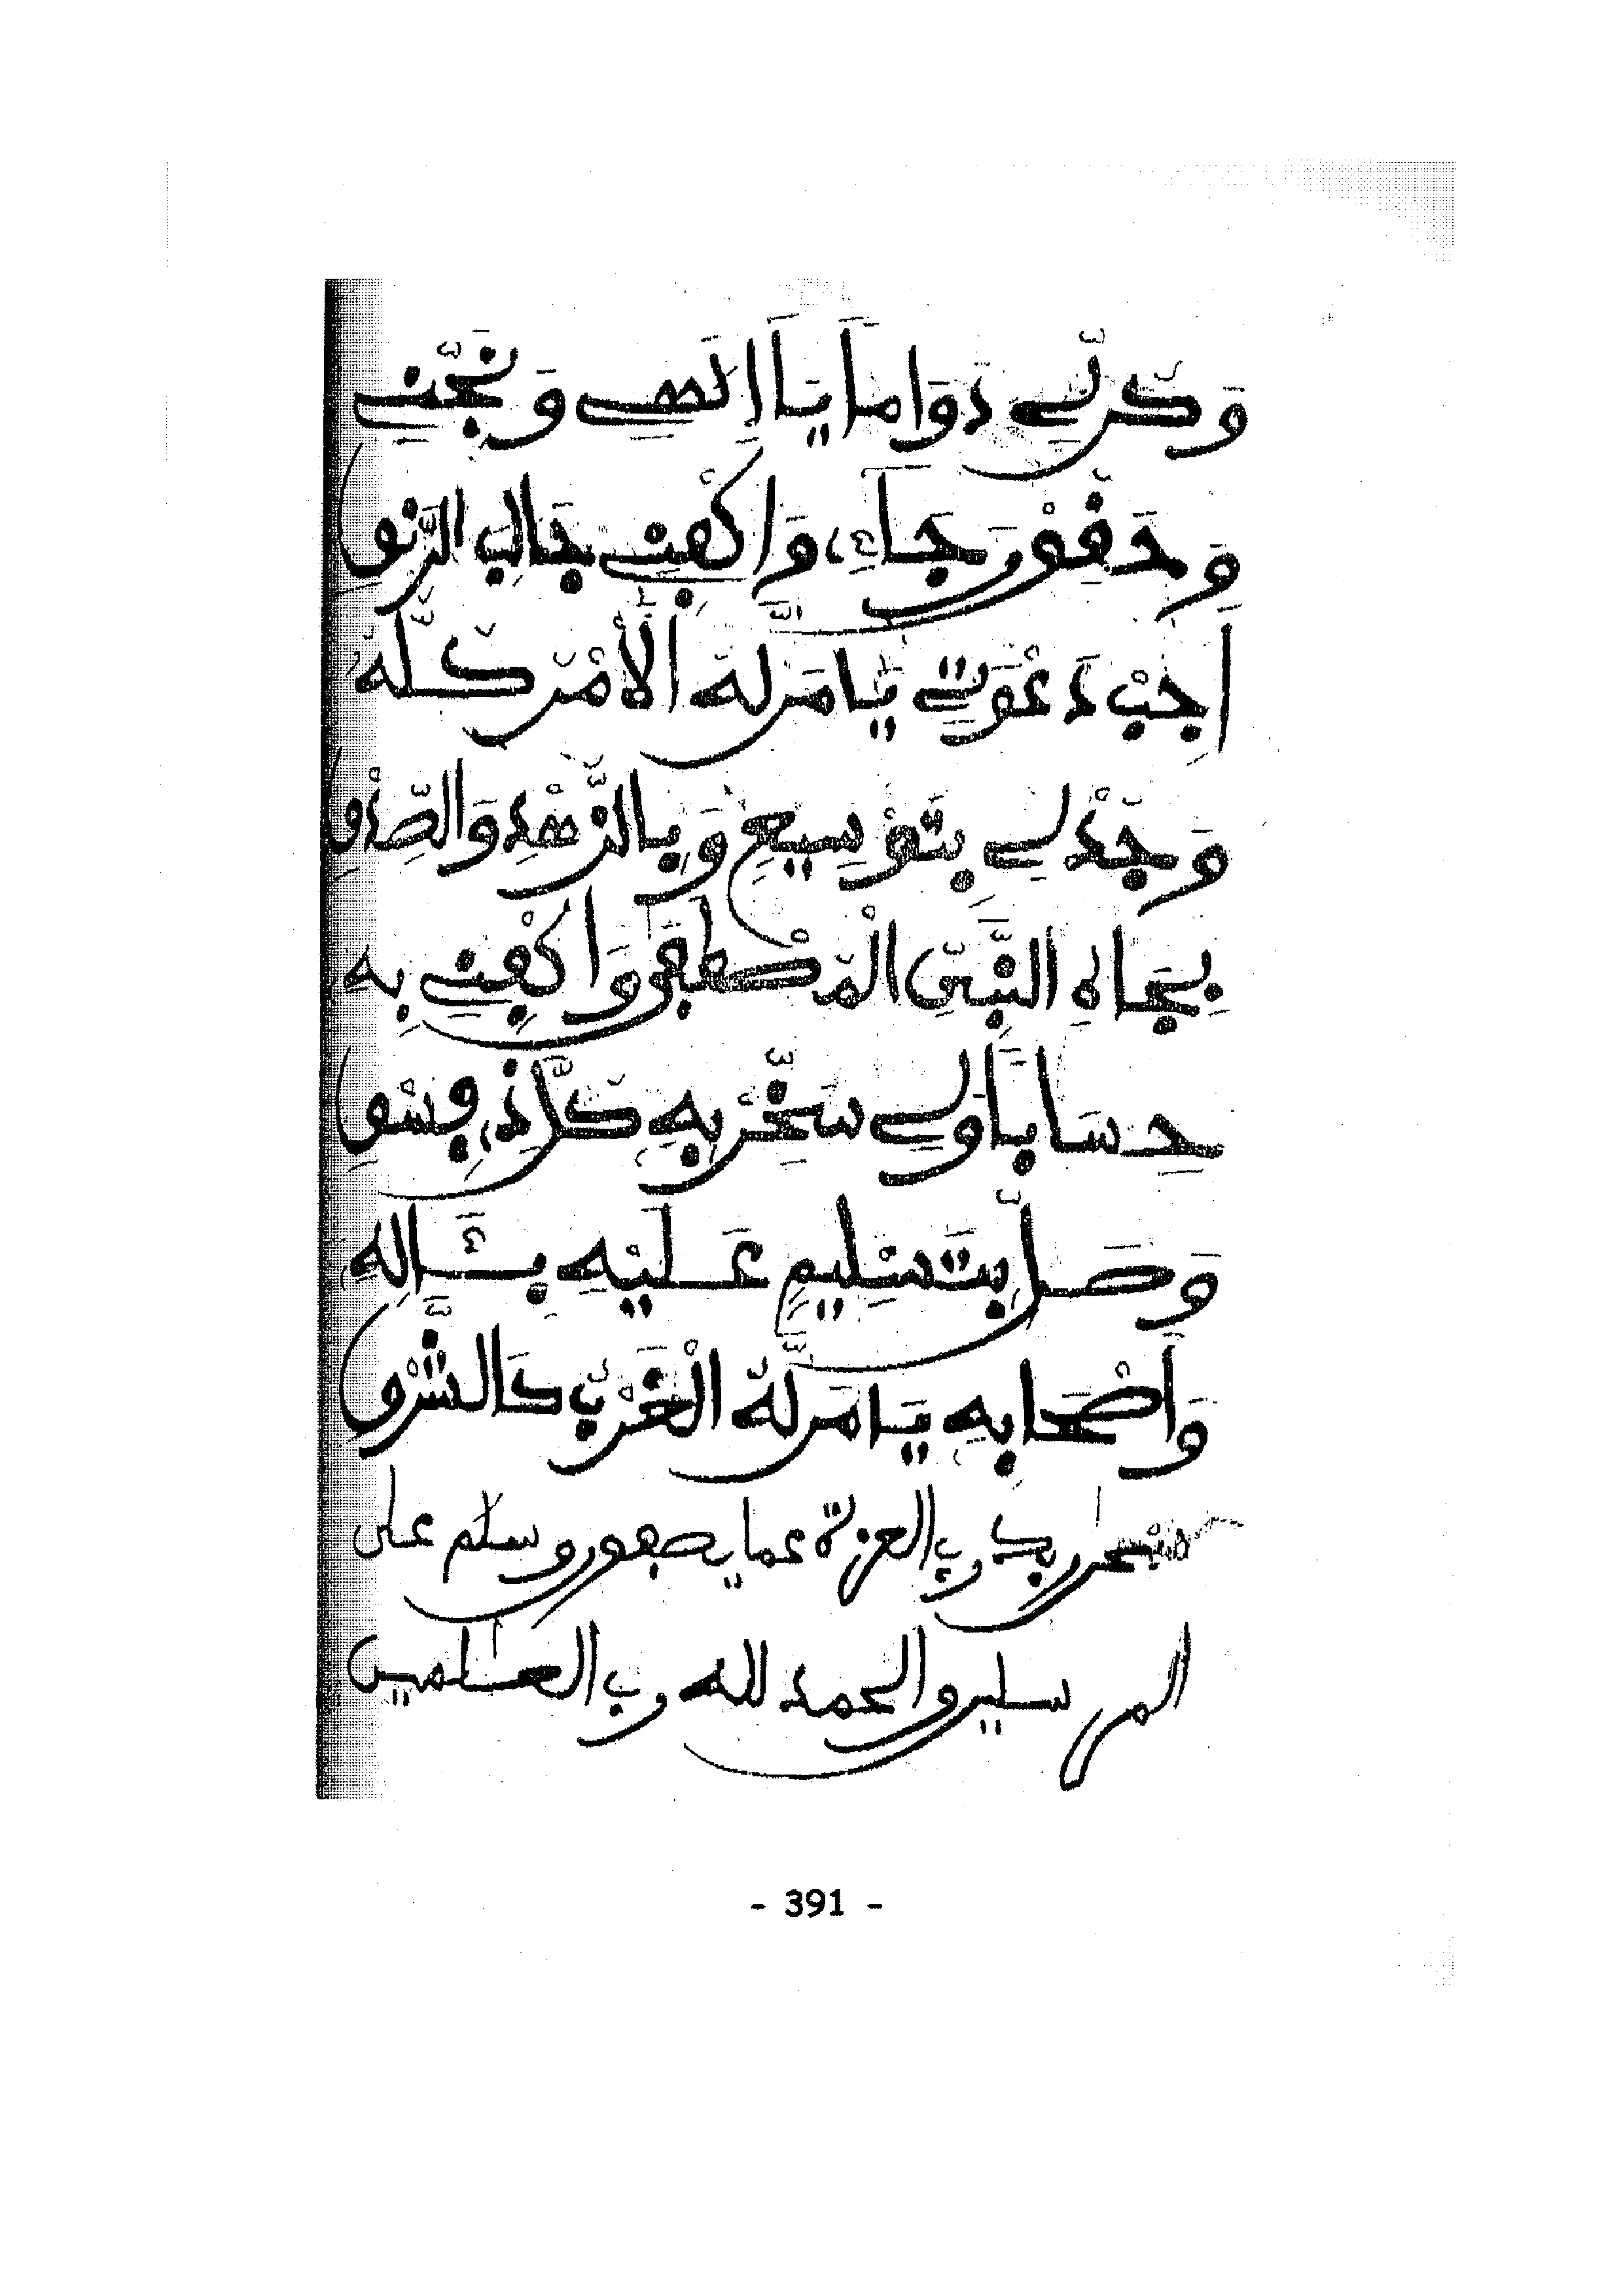 وَكُن لِّي دَوَامًا يَا إِلَهِي وَنَجِّنِي
وَحَقِّقْ رَجَاءِي وَاكْفِنِي جَالِبَ الرَّنْقِ
أَجِبْ دَعْوَتِي يَا مَن لَّهُ الْأَمْرُ كُلُّهُ
وَجُدْ لِي بِتَوْسِيعٍ وَبِالزُّهْدِ وَالصِّدْقِ
بِجَاهِ النَّبِيِّ الْمُصْطَفَى وَاكْفِنِي بِهِ
حِسَابًا وَلِي سَخِّرْ بِهِ كُلَّ ذِي فِسْقِ
وَصَلِّ بِتَسْلِيمٍ عَلَيْهِ بِئَالِهِ
وَأَصْحَابِهِ يَا مَن لَّهُ الْغَرْبُ كَالشَّرْقِ
سبحن ربك رب العزة عما يصفون وسلم على
المرسلين والحمد لله رب العلمين
- 391 -